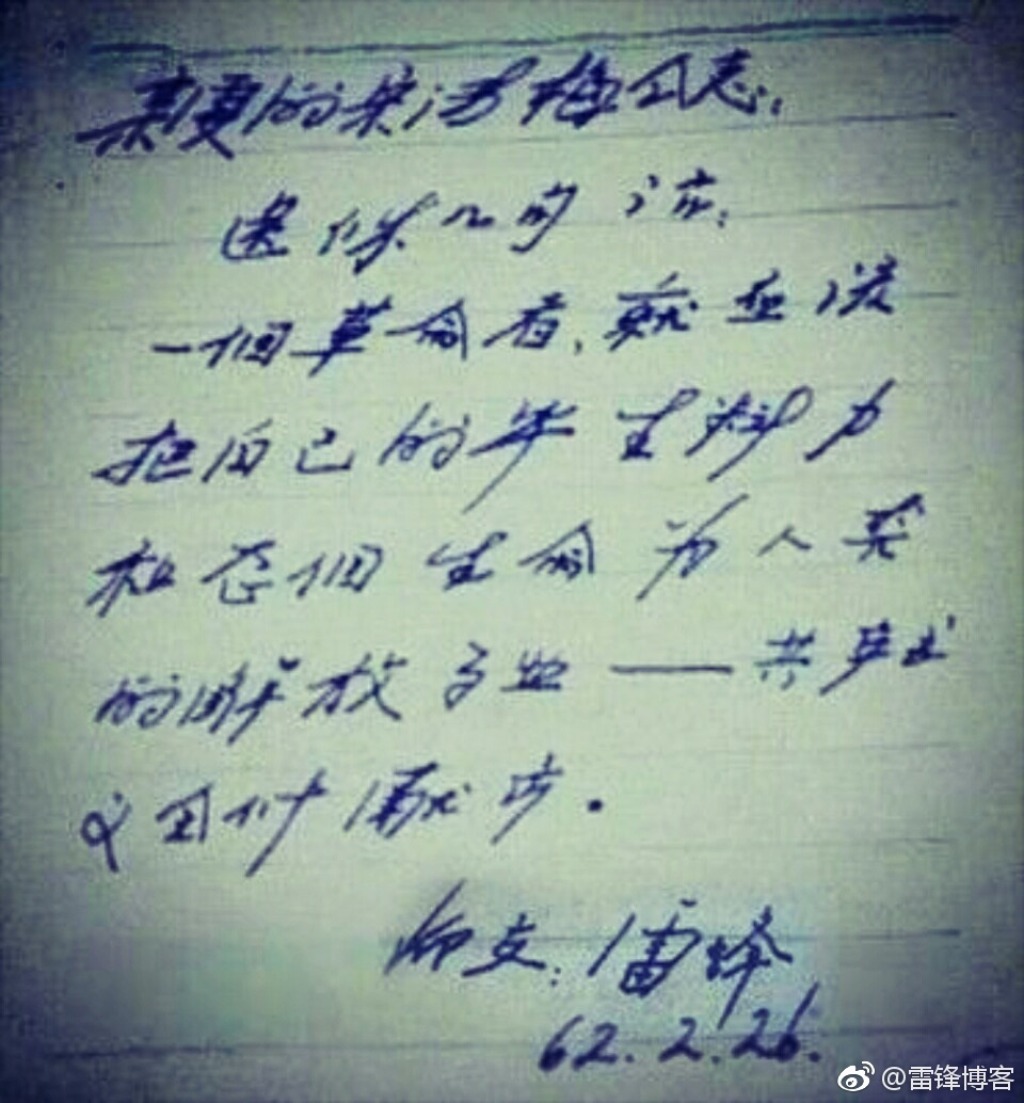 亲爱的宋清梅同志:
送你几句话:
一個革命者,就应该
把自己的毕生精力
和整個生命为人类
的解放事业——共产主
义全付献出.
友:雷锋
62.2.26.
@雷锋博客